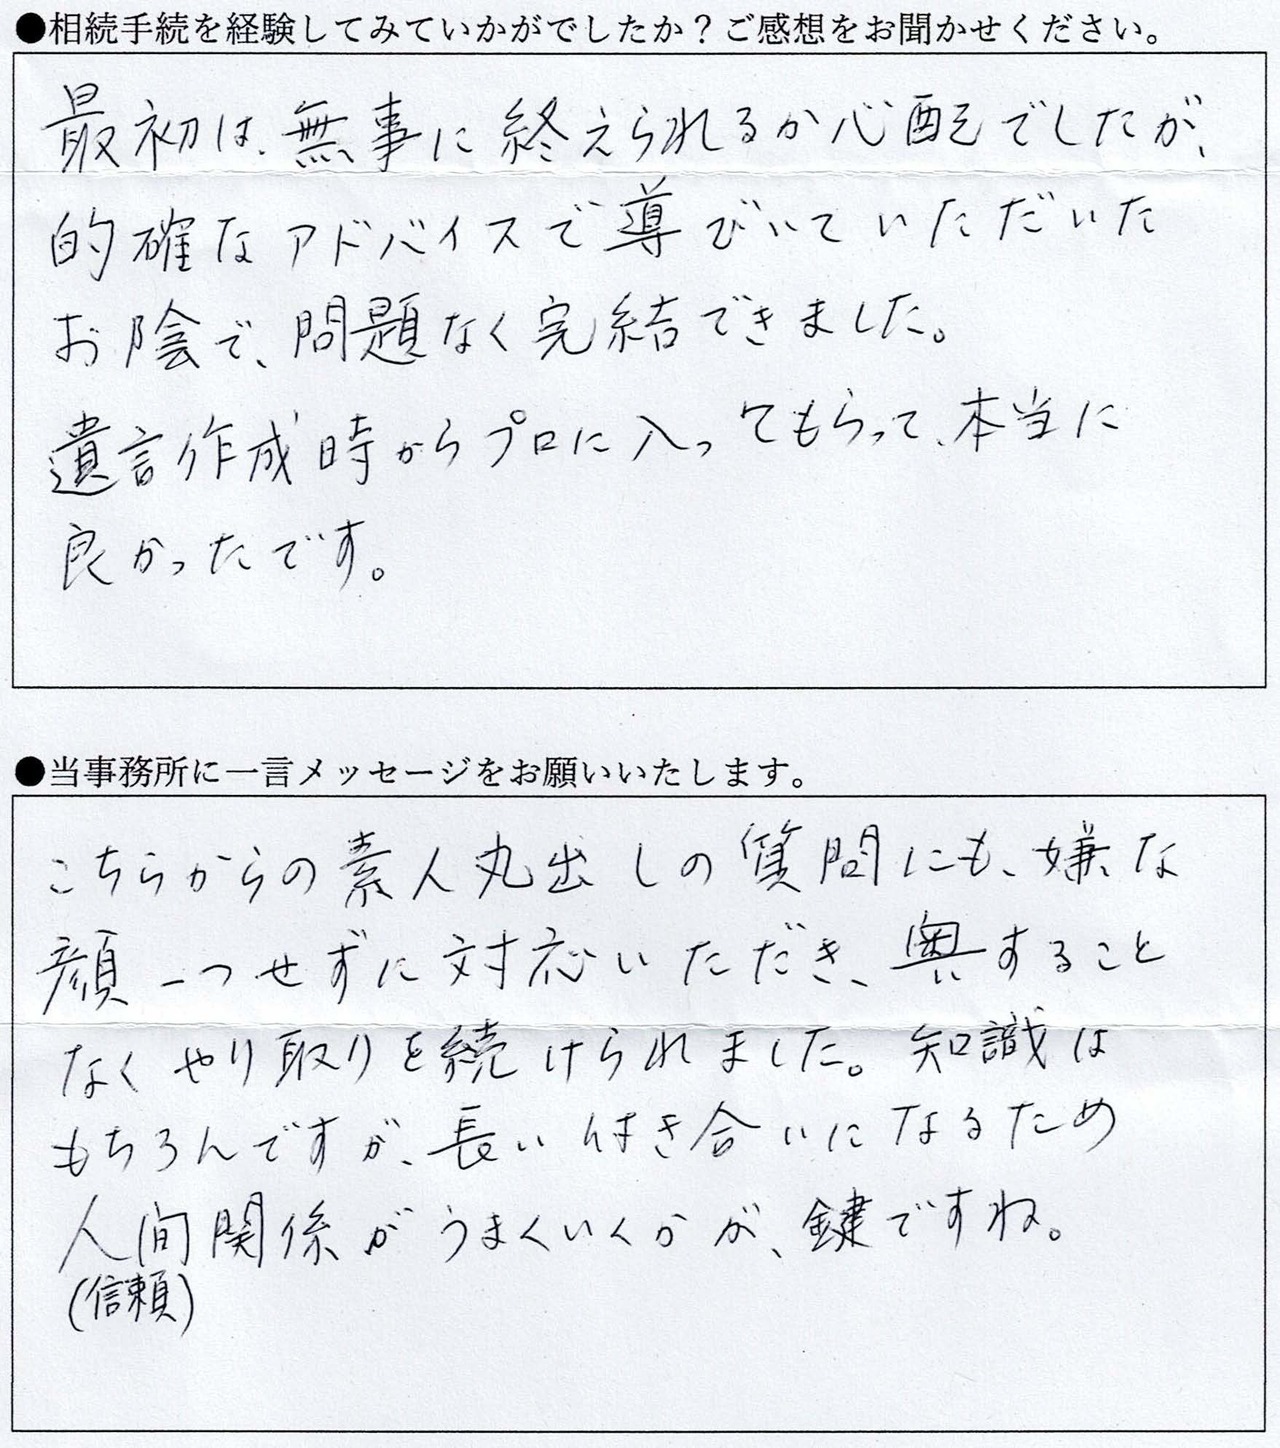 ●相続手続を経験してみていかがでしたか？ご感想をお聞かせください。
最初は、無事に終えられるか心配でしたが、
的確なアドバイスで導びいていただいた
お陰で、問題なく完結できました。
遺言作成時からプロに入ってもらって、本当に
良かったです。
●当事務所に一言メッセージをお願いいたします。
こちらからの素人丸出しの質問にも、嫌な
顔一つせずに対応いただき、臆すること
なくやり取りを続けられました。知識は
もちろんですが、長い付き合いになるため
人間関係がうまくいくかが、鍵ですね。
(信頼)